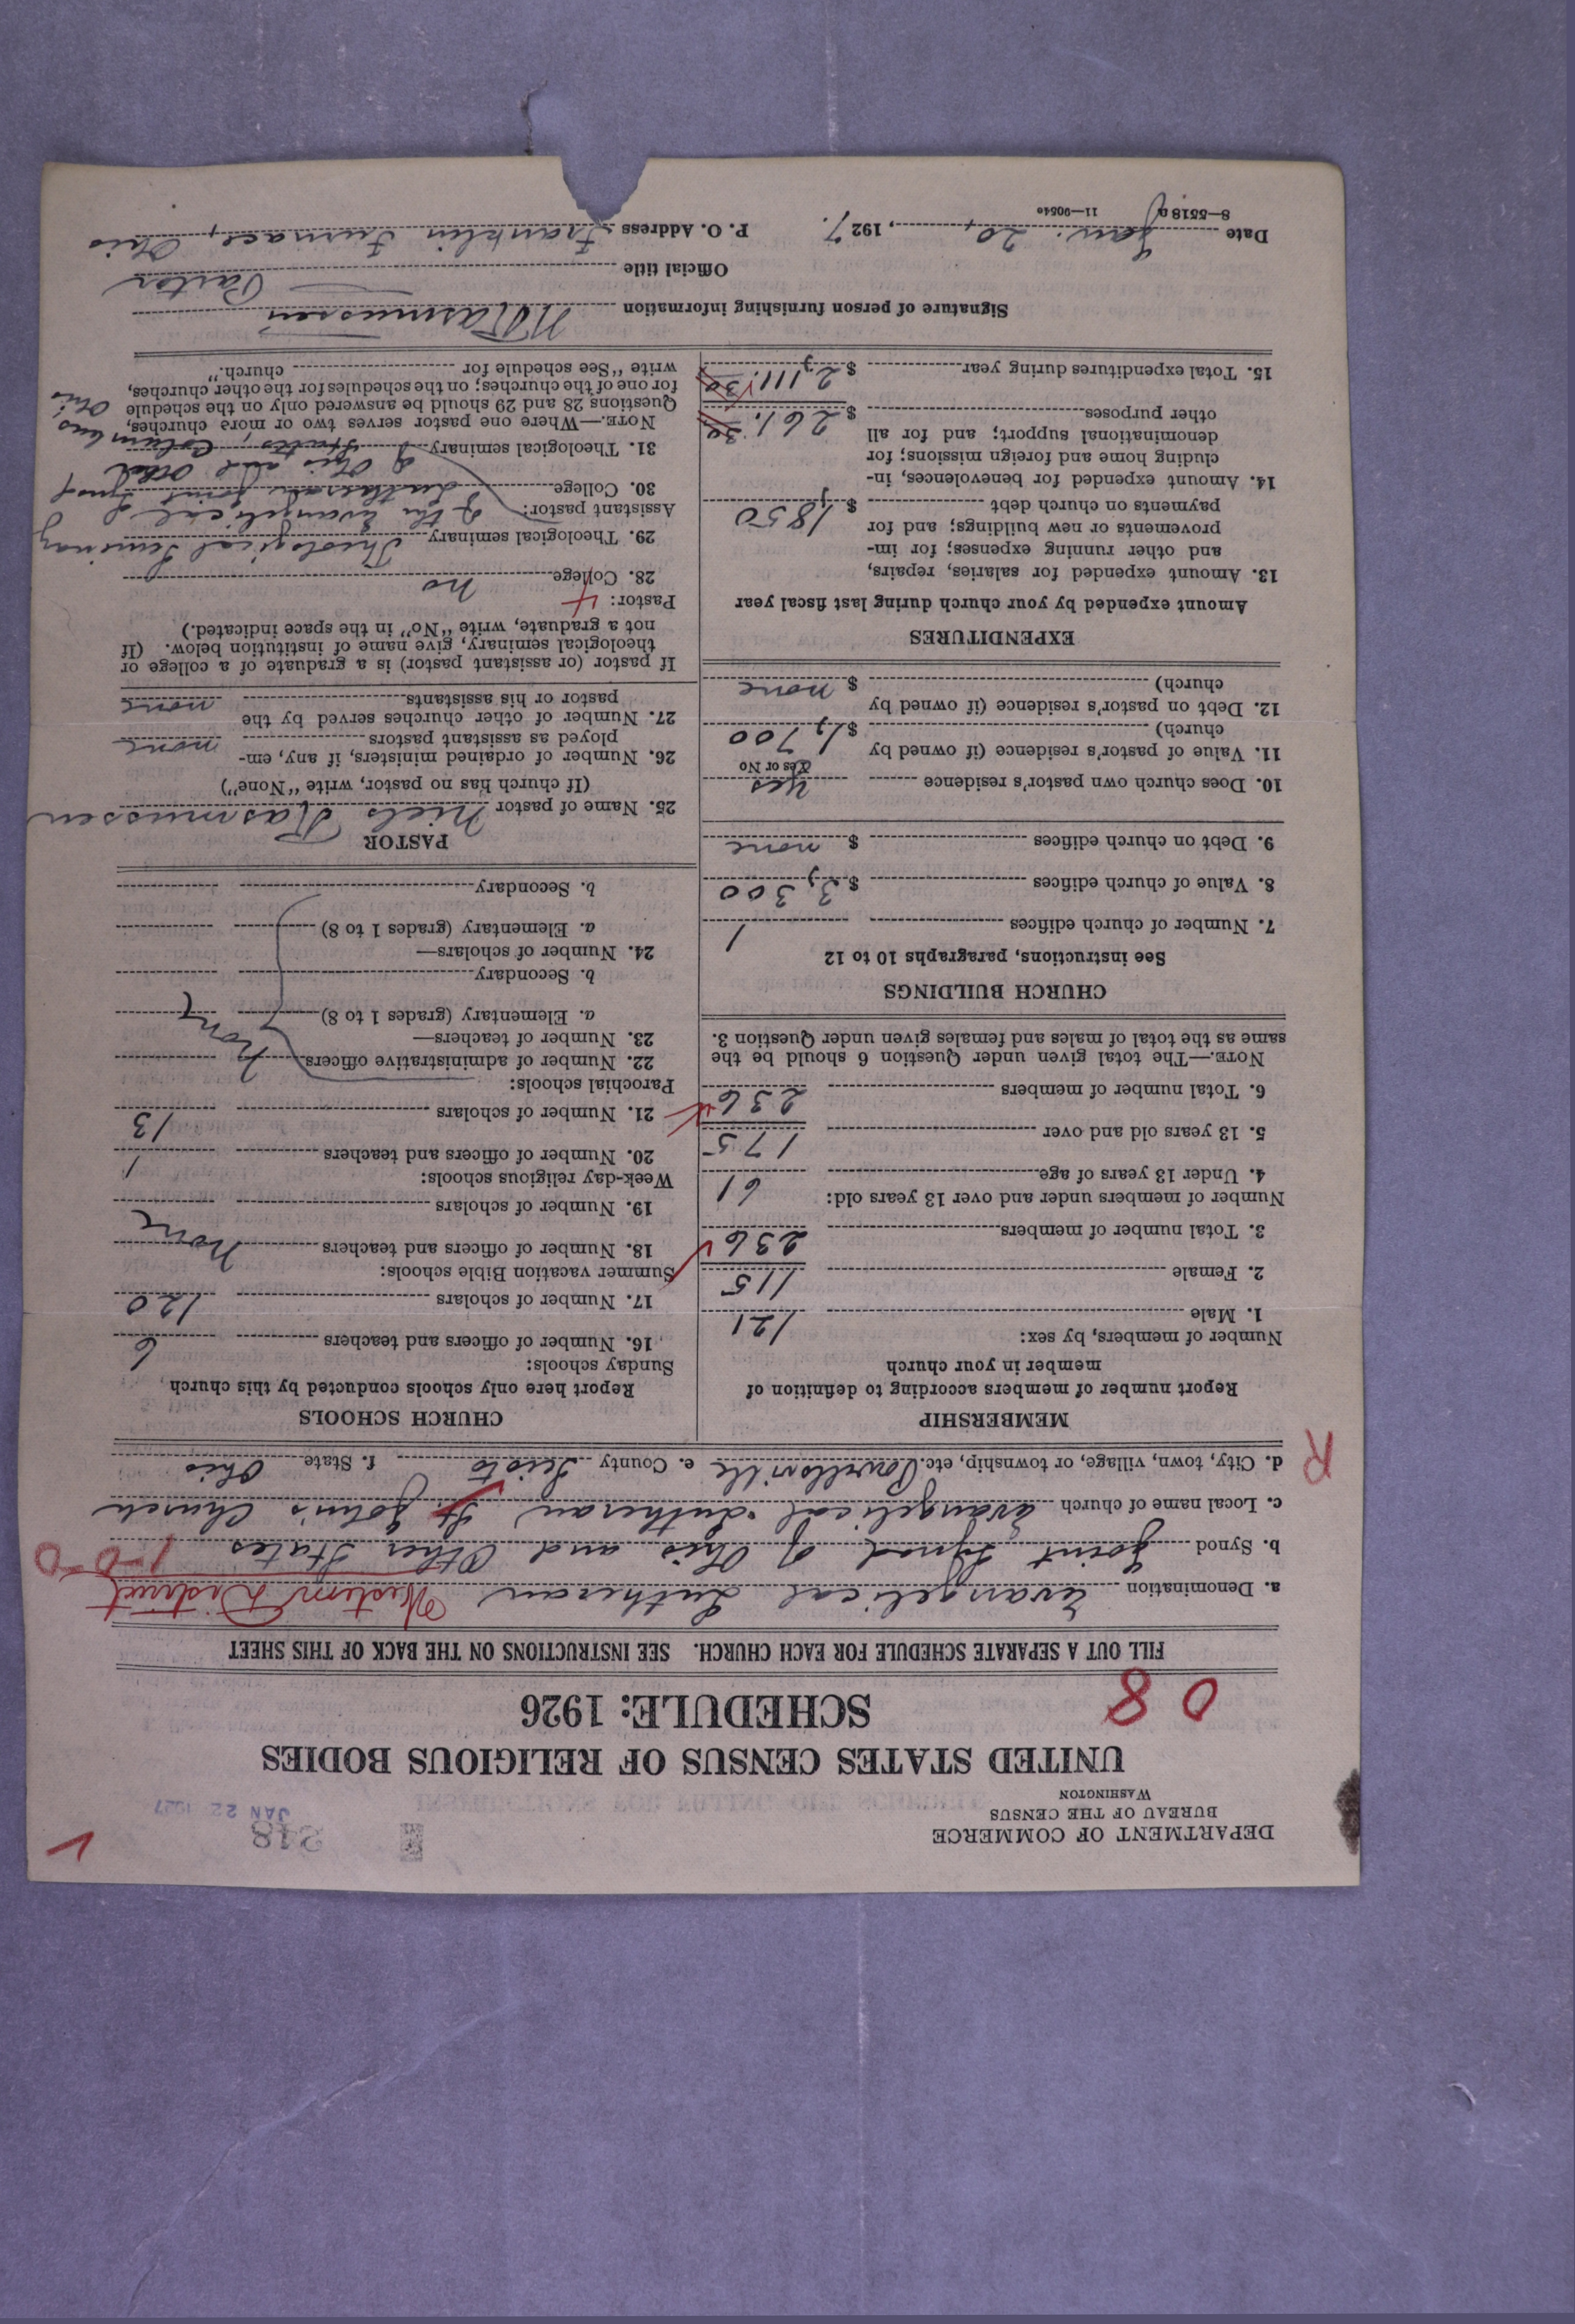 DEPARTMENT OF COMMERCE
BUREAU OF THE CENSUS
WASHINGTON
248
JAN 22 1927
UNITED STATES CENSUS OF RELIGIOUS BODIES
SCHEDULE: 1926
0 8
FILL OUT A SEPARATE SCHEDULE FOR EACH CHURCH. SEE INSTRUCTIONS ON THE BACK OF THIS SHEET
a. Denomination Evangelical Lutheran Western District
b. Synod Joint Synod of Ohio and Other States 1-0-0
c. Local name of church Evangelical Lutheran St. John's Church
d. City, town, village, or township, etc. Powellsville e. County Scioto f. State Ohio
R
MEMBERSHIP
Report number of members according to definition of
member in your church
Number of members, by sex:
1. Male 121
2. Female 115
3. Total number of members 236
Number of members under and over 13 years old:
4. Under 13 years of age 61
5. 13 years old and over 175
6. Total number of members 236
NOTE.—The total given under Question 6 should be the
same as the total of males and females given under Question 3.
CHURCH BUILDINGS
See instructions, paragraphs 10 to 12
7. Number of church edifices 1
8. Value of church edifices $ 3,300
9. Debt on church edifices $ none
10. Does church own pastor's residence yes
Yes or No
11. Value of pastor's residence (if owned by
church) $ 1,700
12. Debt on pastor's residence (if owned by
church) $ none
EXPENDITURES
Amount expended by your church during last fiscal year
13. Amount expended for salaries, repairs,
and other running expenses; for im-
provements or new buildings; and for
payments on church debt $ 1,850
14. Amount expended for benevolences, in-
cluding home and foreign missions; for
denominational support; and for all
other purposes $ 261.30
15. Total expenditures during year $ 2,111.30
CHURCH SCHOOLS
Report here only schools conducted by this church
Sunday schools:
16. Number of officers and teachers 6
17. Number of scholars 120
Summer vacation Bible schools:
18. Number of officers and teachers None
19. Number of scholars
Week-day religious schools:
20. Number of officers and teachers 1
21. Number of scholars 13
Parochial schools:
22. Number of administrative officers None
23. Number of teachers—
a. Elementary (grades 1 to 8)
b. Secondary
24. Number of scholars—
a. Elementary (grades 1 to 8)
b. Secondary
PASTOR
25. Name of pastor Niels Rasmussen
(If church has no pastor, write "None")
26. Number of ordained ministers, if any, em-
ployed as assistant pastors none
27. Number of other churches served by the
pastor or his assistants none
If pastor (or assistant pastor) is a graduate of a college or
theological seminary, give name of institution below. (If
not a graduate, write "No" in the space indicated.)
Pastor:
28. College no
29. Theological seminary Theological Seminary
Assistant pastor: of the Evangelical
30. College Lutheran Joint Synod
of Ohio and Other
31. Theological seminary States, Columbus, Ohio
NOTE.—Where one pastor serves two or more churches,
Questions 28 and 29 should be answered only on the schedule
for one of the churches; on the schedules for the other churches,
write "See schedule for church."
Signature of person furnishing information N Rasmussen
Official title Pastor
Date Jan. 20, 1927. P. O. Address Franklin Furnace, Ohio
8—5518 a 11—9054c